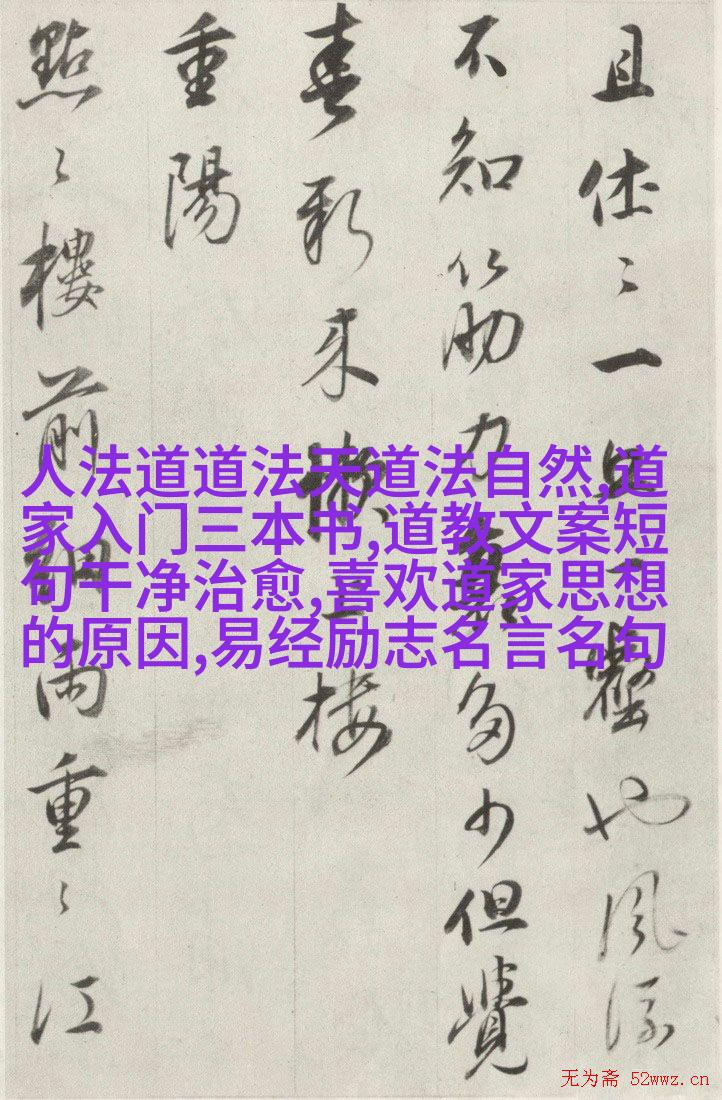 且休〻一丘一壑也風流
不知筋力衰多少但覺
春新来懶上楼
重陽
點〻樓前細雨重〻江
人法道道法天道法自然,道
家入门三本书,道教文案短
句干净治愈,喜欢道家思想
的原因,易经励志名言名句
无为斋 52wwz.cn